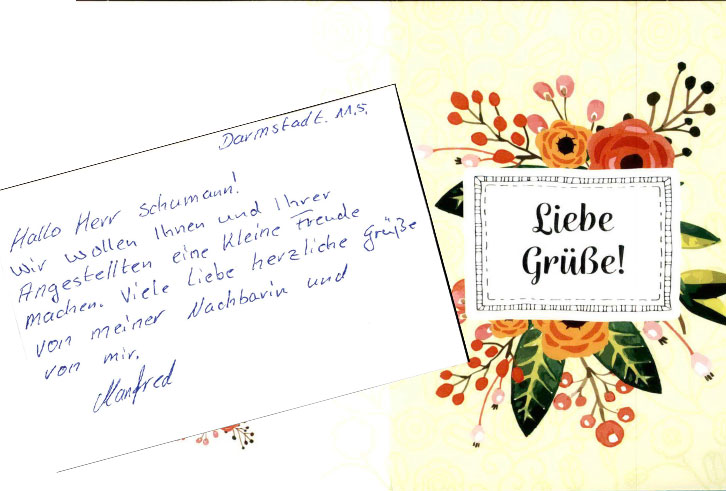 Darmstadt. 11.5.
Hallo Herr Schumann!
Wir wollen Ihnen und Ihrer
Angestellten eine kleine Freude
machen. Viele liebe herzliche Grüße
von meiner Nachbarin und
von mir.
Manfred
Liebe
Grüße!